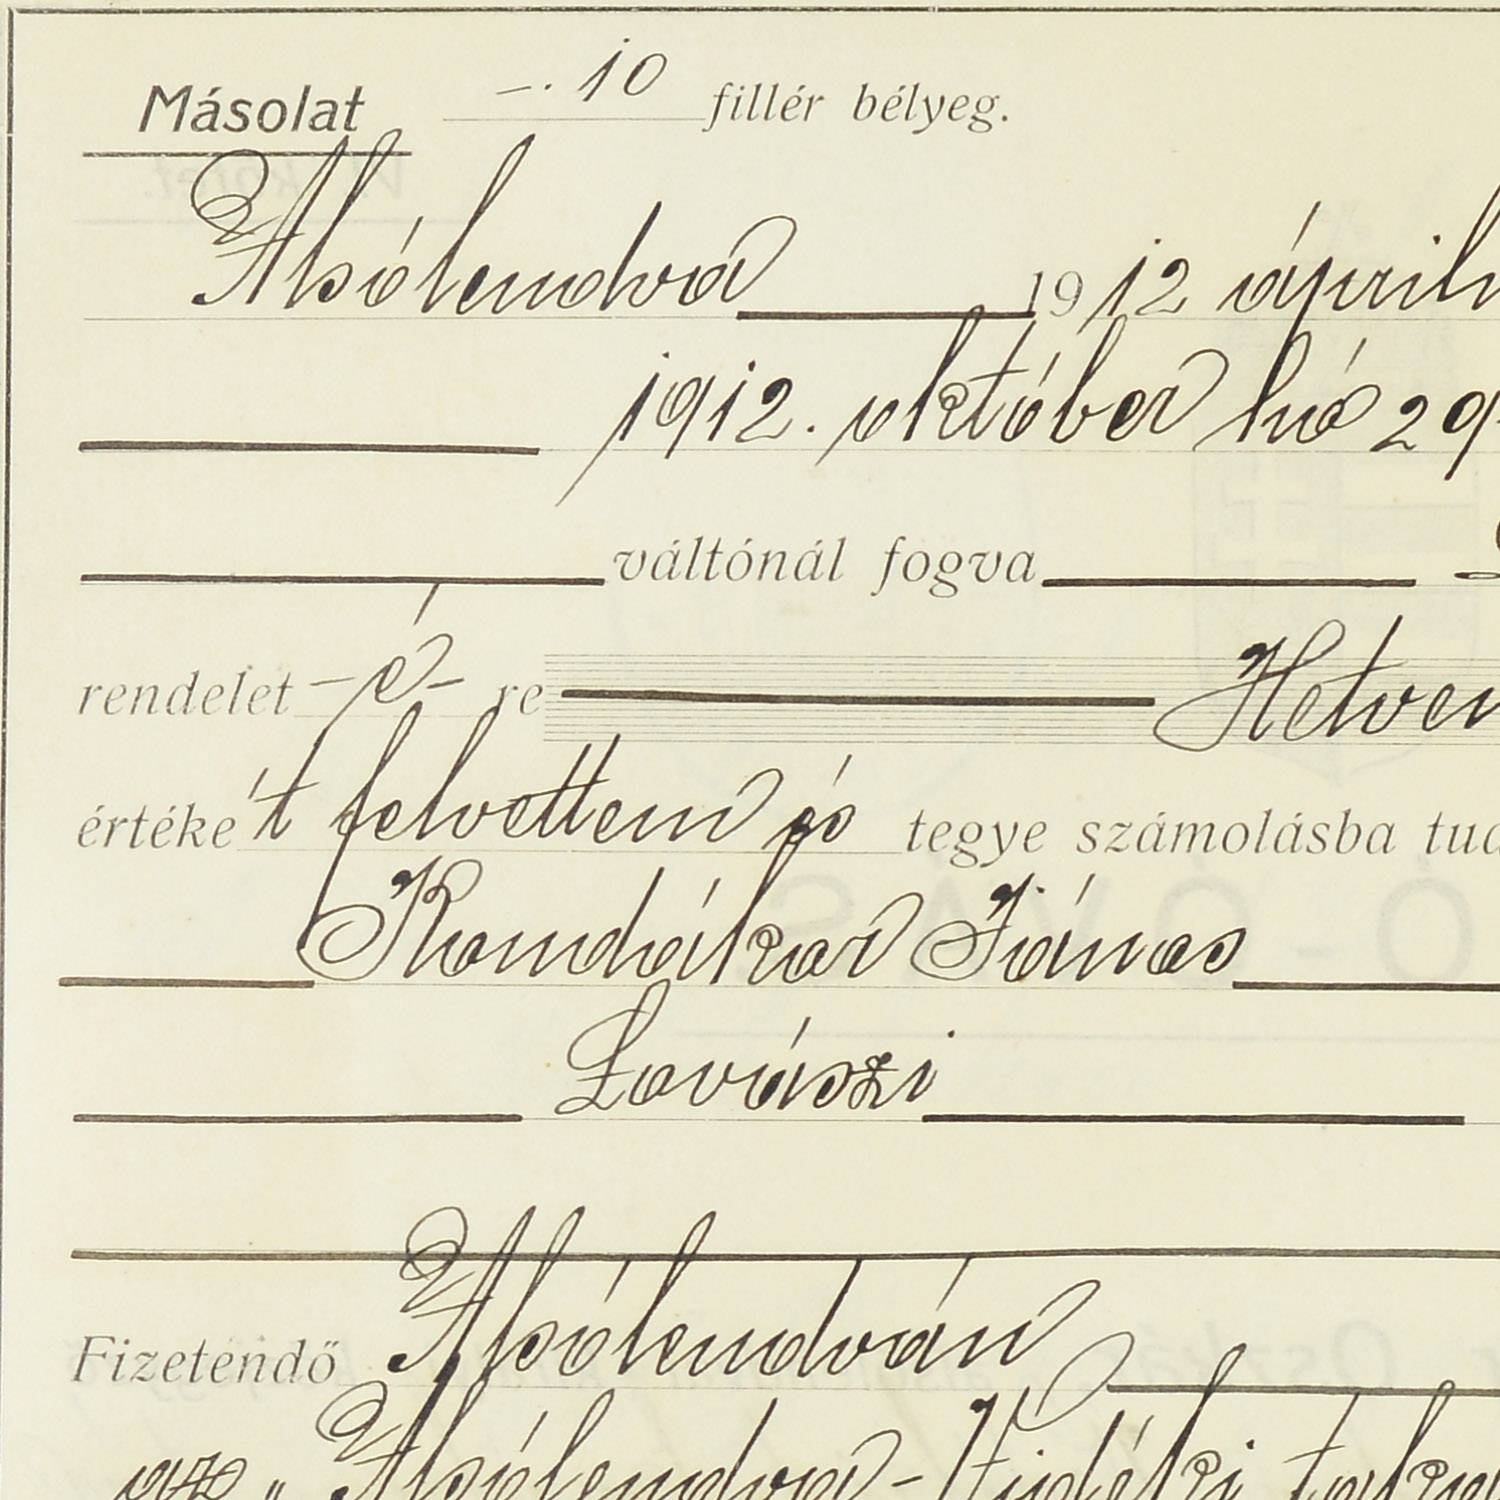 Másolat -.10 fillér bélyeg.
Alsólendva 1912 ápril
1912. október hó 29
váltónál fogva
rendelet -é- re Hetven
értéke't felvettem és tegye számolásba tud
János
Lovászi
Fizetendő Alsólendván
az „Alsólendva-Vidéki taka